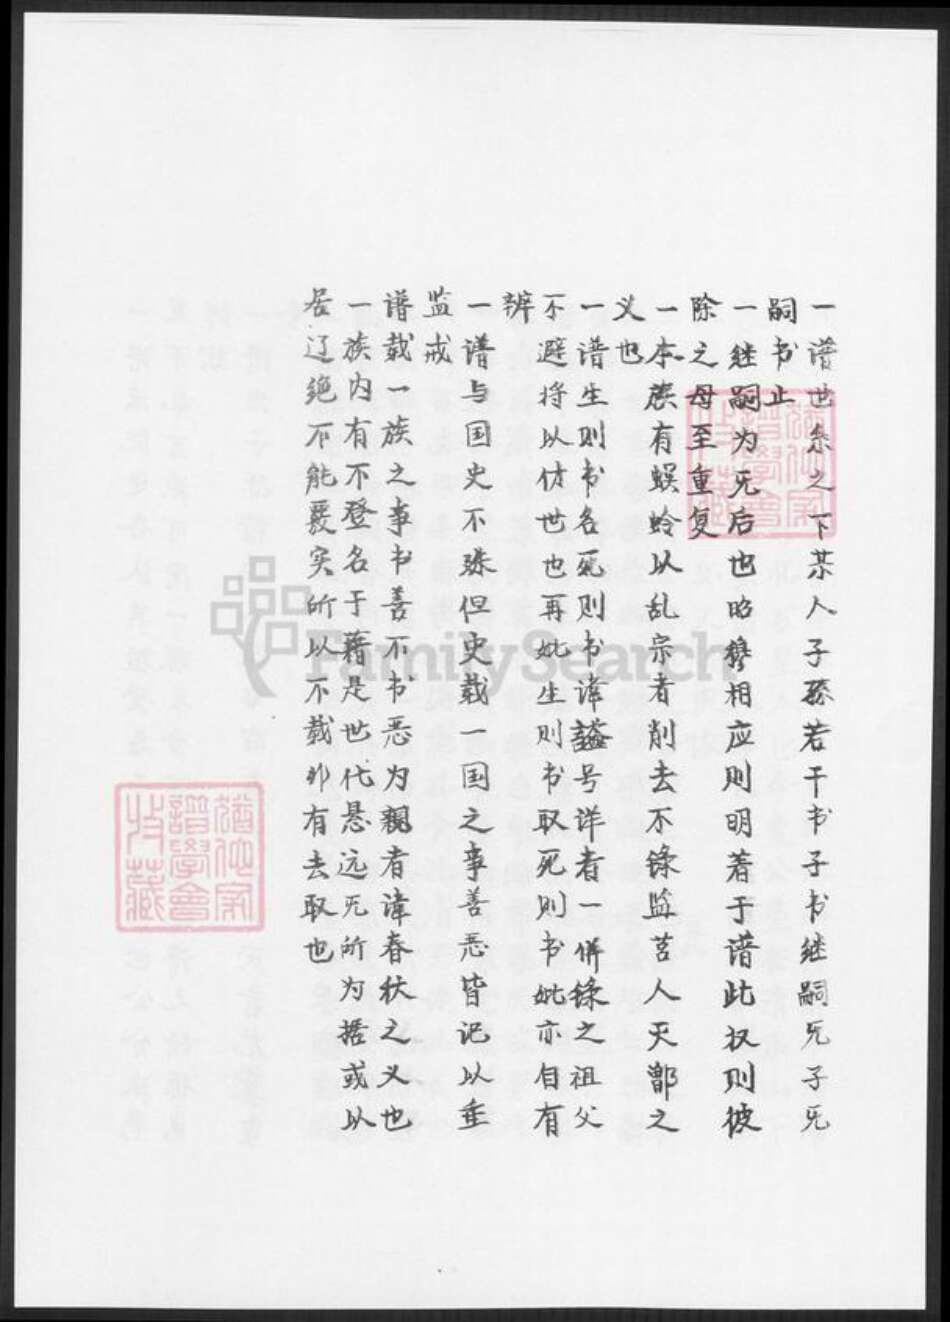 一谱世系之下某人子孫若干书子书继嗣无子无
嗣书止
一继嗣为无后也昭穆相应则明着于谱此收则彼
除之母至重复
一本族有螟蛉以乱宗者削去不錄监莒人灭鄫之
义也
一谱生则书名死则书讳謚号详者一併錄之祖父
不避将以付世也再妣生则书取死则书妣亦自有
辨
一谱与国史不殊但史载一国之事善恶皆记以垂
监戒
谱载一族之事书善不书恶为親者讳春秋之义也
一族内有不登名于藉是世代悬远无所为据或以
居辽绝不能覈实所以不载非有去取也
FamilySearch